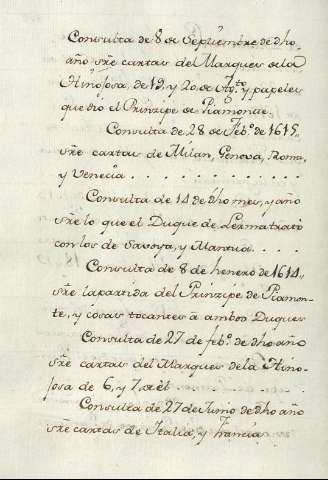 Consulta de 8 de Septiembre de dho
año sre cartas del Marques de la
Hinojosa, de 19, y 20 de Agto, y papeles
que dió el Principe de Piamonte.
Consulta de 28 de Febo. de 1615,
sre cartas de Milan, Genova, Roma,
y Venecia . . . . . . . . . . . .
Consulta de 14 de dho mes, y año
sre lo que el Duque de Lerma trató
con los de Savoya, y Mantua. . . .
Consulta de 8 de henero de 1614
sre la partida del Prinzipe de Piamon-
te, y cosas tocantes a ambos Duques
Consulta de 27 de febo. de dho año
sre cartas del Marques de la Hino-
josa de 6, y 7, de el . . . .
Consulta de 27 de Junio de dho año
sre cartas de Italia, y Francia